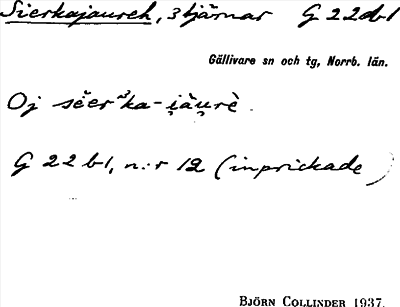 Sierkajaureh, 3 tjärnar G 22 d1
Gällivare sn och tg, Norrb. län.
Oj
G 22 b1, n:r 12 (inprickade)
BJÖRN COLLINDER 1937.